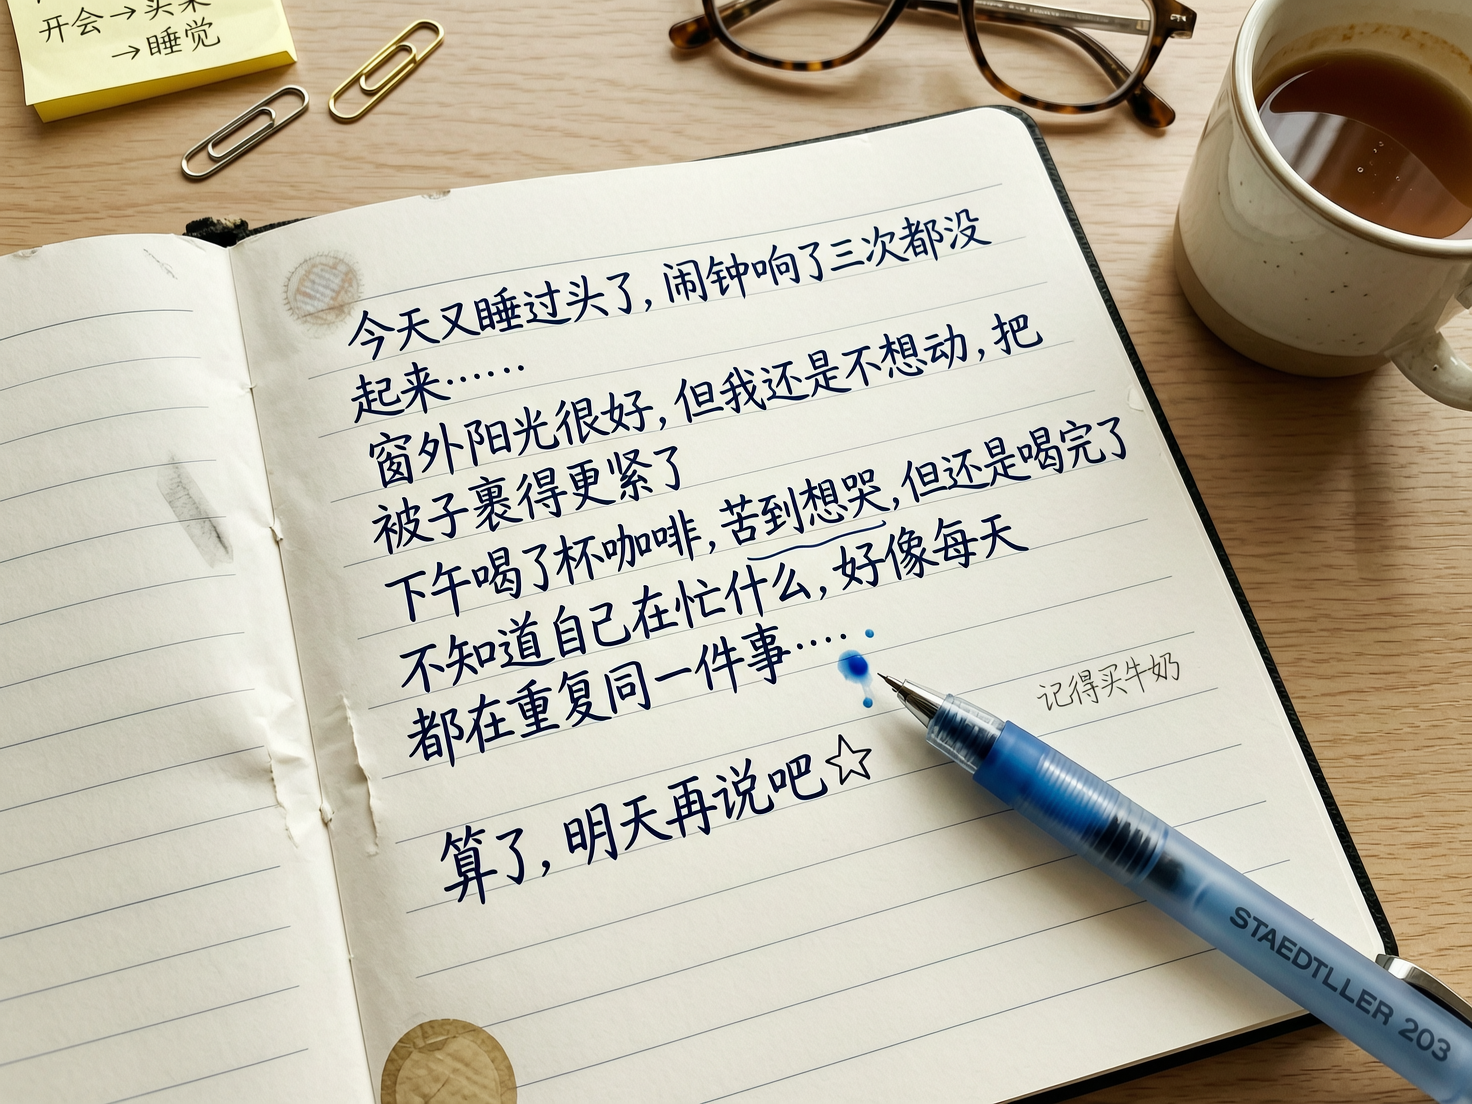 开会→头
→睡觉
今天又睡过头了,闹钟响了三次都没
起来……
窗外阳光很好,但我还是不想动,把
被子裹得更紧了
下午喝了杯咖啡,苦到想哭,但还是喝完了
不知道自己在忙什么,好像每天
都在重复同一件事····
记得买牛奶
算了,明天再说吧☆
STAEDTLLER 203